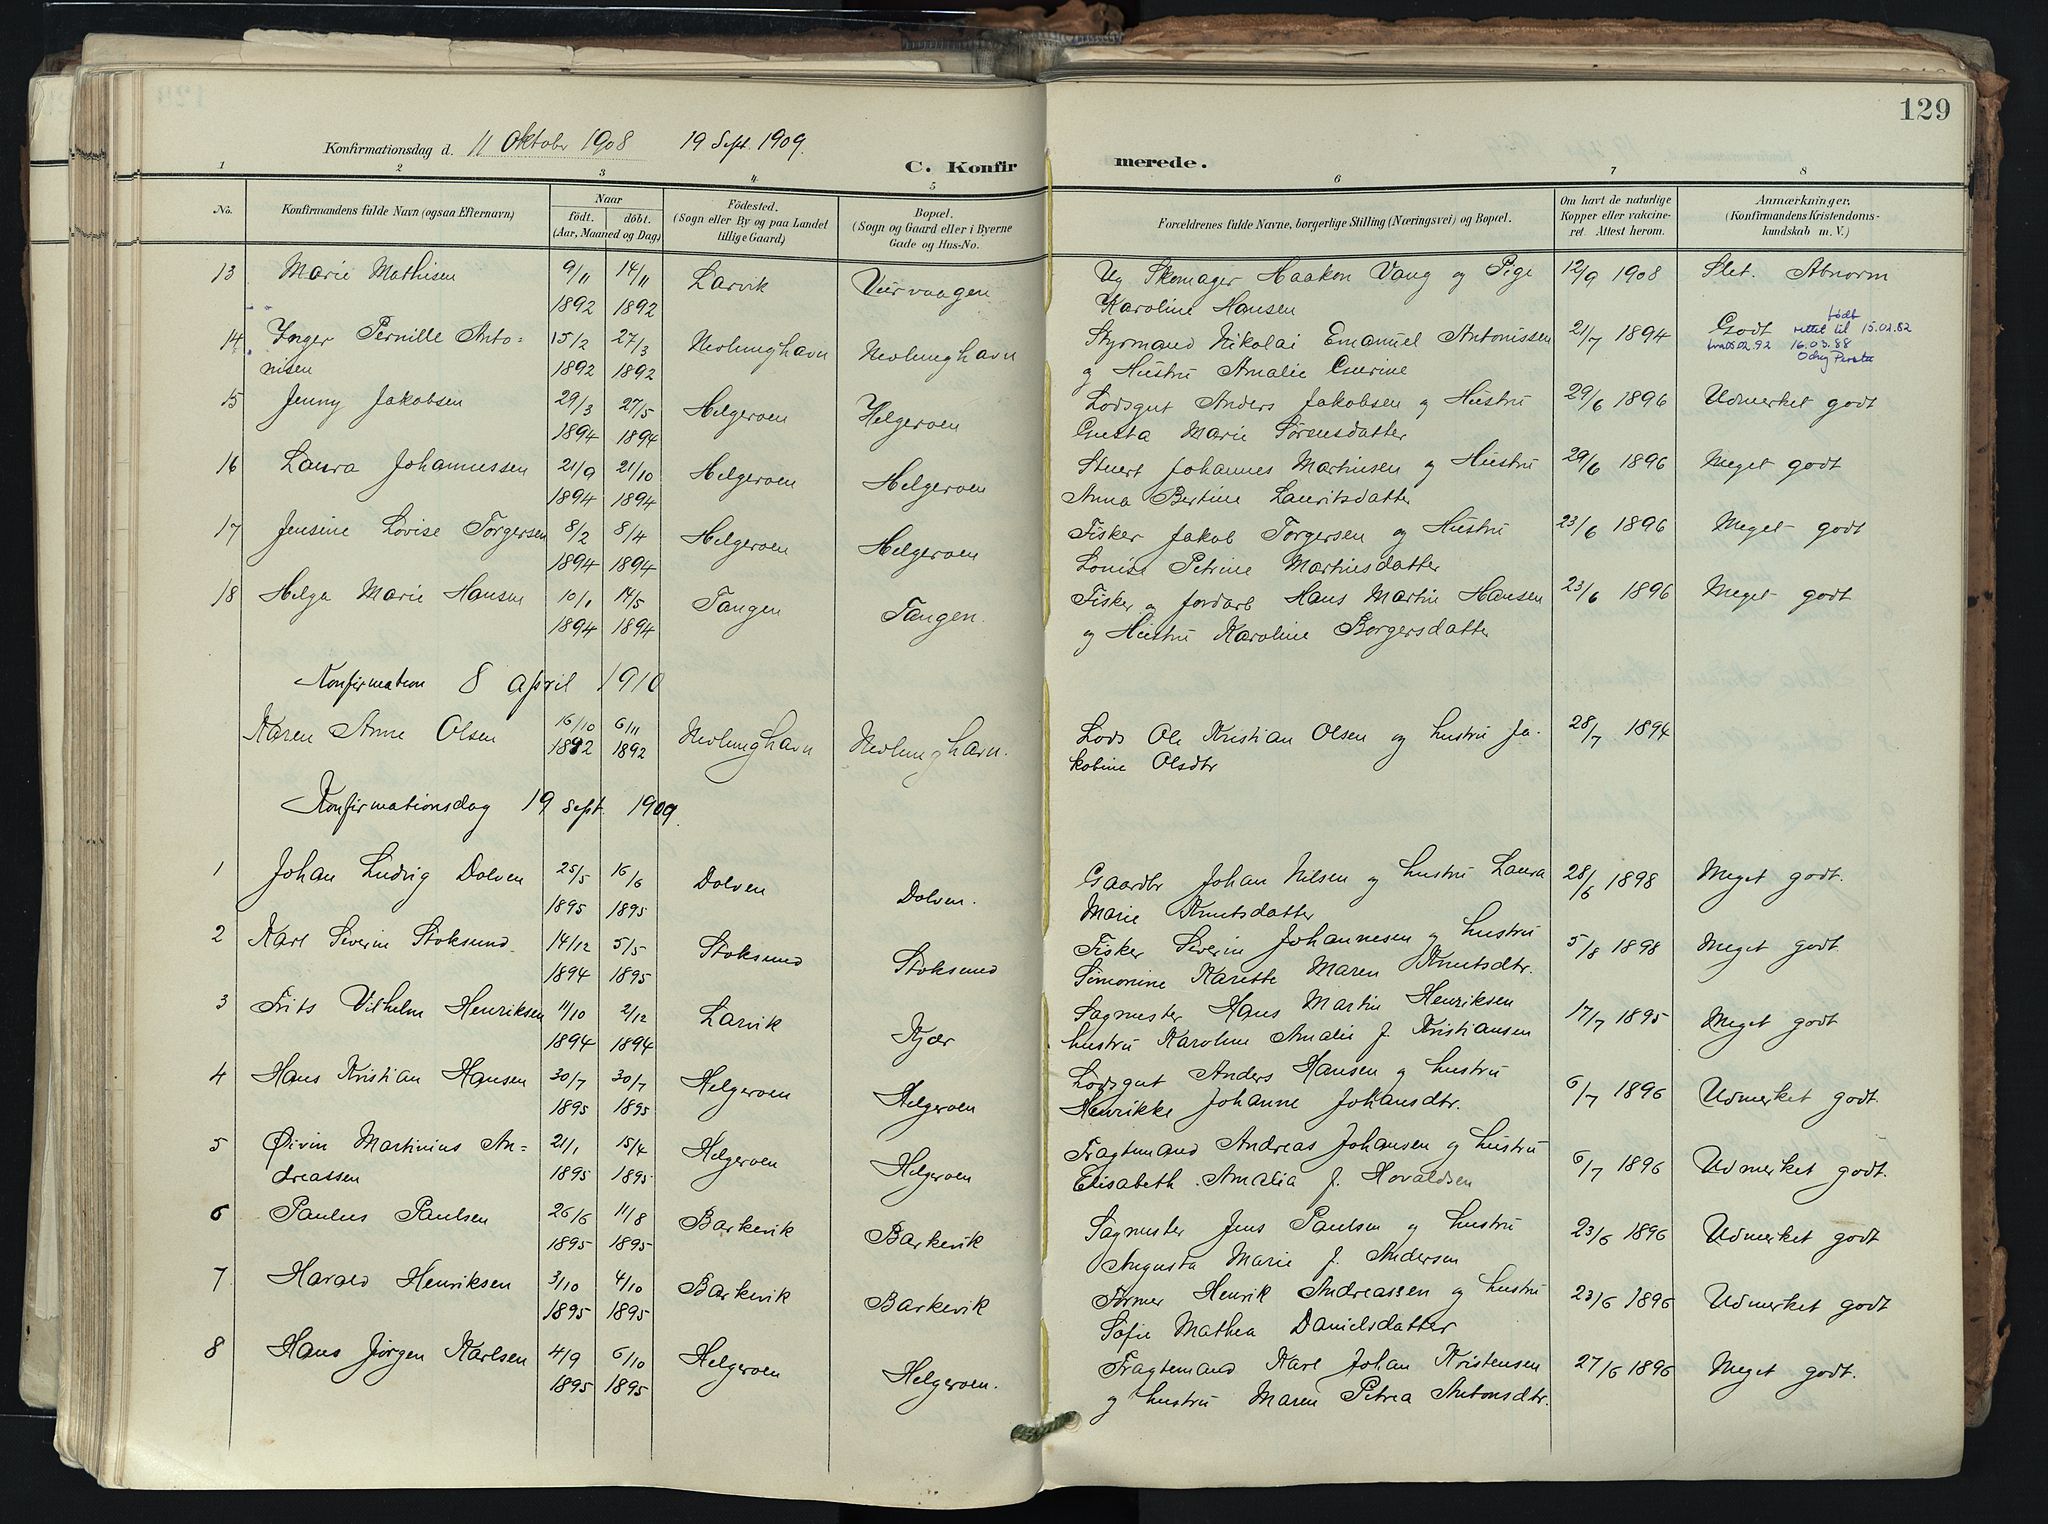 129
Konfirmationsdag d. 11 Oktober 1908 19 Sept. 1909.
C. Konfirmerede.
1 2 3 4 5 6 7 8
No.
Konfirmandens fulde Navn (ogsaa Efternavn)
Naar
födt. döbt.
(Aar, Maaned og Dag)
Födested.
(Sogn eller By og paa Landet
tillige Gaard)
Bopæl.
(Sogn og Gaard eller i Byerne
Gade og Hus-No.
Forældrenes fulde Navne, borgerlige Stilling (Næringsvei) og Bopæl.
Om havt de naturlige
Kopper eller vakcine-
ret. Attest herom.
Anmærkninger,
(Konfirmandens Kristendoms-
kundskab m. V.)
13 Marie Mathisen 9/11 14/11 Larvik Veirvaagen Ug Skomager Haakon Vang og Pige 12/9 1908 Slet. Abnorm
1892 1892 Karoline Hansen
14 Inger Pernille Anto- 15/2 27/3 Nevlunghavn Nevlunghavn Styrmand Nikolai Emanuel Antonissen 21/7 1894 Godt født rettet til 15.02.82
nisen 1892 1892 og Hustru Amalie Guerine 16.03.88
15 Jenny Jakobsen 29/3 27/5 Helgeroen Helgeroen Lodsgut Anders Jakobsen og Hustru 29/6 1896 Udmerket godt
1894 1894 Gusta Marie Sørensdatter
16 Laura Johannessen 21/9 21/10 Helgeroen Helgeroen Stuert Johannes Martinsen og Hustru 29/6 1896 Meget godt
1894 1894 Anna Bertine Lauritsdatter
17 Jensine Lovise Torgersen 8/2 8/4 Helgeroen Helgeroen Fisker Jakob Torgersen og Hustru 23/6 1896 Meget godt
1894 1894 Louise Petrine Martinsdatter
18 Helga Marie Hansen 10/1 14/5 Tangen Tangen. Fisker og Jordarb Hans Martin Hansen 23/6 1896 Meget godt
1894 1894 og Hustru Karoline Borgersdatter
Konfirmation 8 april 1910
Karen Anne Olsen 16/10 6/11 Nevlunghavn Nevlunghavn. Lods Ole Kristian Olsen og hustru Ja- 28/7 1894
1892 1892 kobine Olsdtr
Konfirmationsdag 19 sept. 1909.
1 Johan Ludvig Dolven 25/5 16/6 Dolven Dolven. Gaardbr Johan Nilsen og hustru Laura 28/6 1898 Meget godt.
1895 1895 Marie Knutsdatter
2 Karl Severin Stoksund 14/12 5/5 Stoksund Stoksund Fisker Severin Johannesen og hustru 5/8 1898 Meget godt
1894 1895 Simonine Karette Maren Knutsdtr.
3 Frits Vilhelm Henriksen 11/10 2/12 Larvik Kjær Sagmester Hans Martin Henriksen 17/7 1895 Meget godt
1894 1894 hustru Karoline Amalie f. Kristiansen
4 Hans Kristian Hansen 30/7 30/7 Helgeroen Helgeroen Lodsgut Anders Hansen og hustru 6/7 1896 Udmerket godt.
1895 1895 Henrikke Johanne Johansdtr.
5 Øivin Martinius An- 21/1 15/4 Helgeroen Helgeroen Fragtemand Andreas Johansen og hustru 6/7 1896 Udmerket godt.
dreassen 1895 1895 Elisabeth Amalia f. Hovaldsen
6 Paulus Paulsen 26/6 11/8 Barkevik Barkevik Sagmester Jens Paulsen og hustru 23/6 1896 Udmerket godt
1895 1895 Augusta Marie f. Andersen
7 Harald Henriksen 3/10 4/10 Barkevik Barkevik Tømer Henrik Andreassen og hustru 23/6 1896 Udmerket godt
1895 1895 Sofie Mathea Danielsdatter
8 Hans Jørgen Karlsen 4/9 6/10 Helgeroen Helgeroen. Fragtemand Karl Johan Kristensen 27/6 1896 Meget godt.
1895 1895 og hustru Maren Petrea Antonsdtr.